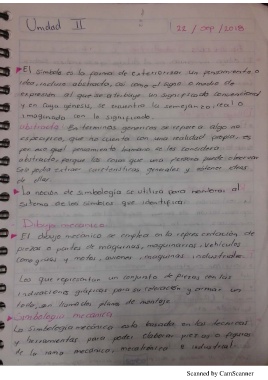 Unidad II 22 / Sep / 2018
El símbolo es la forma de exteriorizar un pensamiento o
idea, incluso abstracta, así como el signo o medio de
expresión al que se atribuye un significado convencional
y en cuya génesis, se encuentra la semejanza real o
imaginada con lo significado.
abstracto. En términos genéricos se refiere a algo no
específico, que no cuenta con una realidad propia, es
por eso que el pensamiento humano se les considera
abstracto porque las cosas que una persona puede observar
características generales y obtener ideas
de
La noción de simbología se utiliza para nombrar al
sistema de los símbolos que identifican
Dibujo mecánico
El dibujo mecánico se emplea en la representación de
piezas o partes de máquinas, maquinarias, vehículos
como grúas y motos, aviones, maquinas industriales.
Los que representan un conjunto de piezas con las
indicaciones gráficas para su colocación y armar un
todo, son llamados planos de montaje.
Simbología mecánica
La simbología mecánica esta basada en las tecnicas
y herramientas para poder elaborar piezas o figuras
de la rama mecánica, mecatrónica e industrial
Scanned by CamScanner